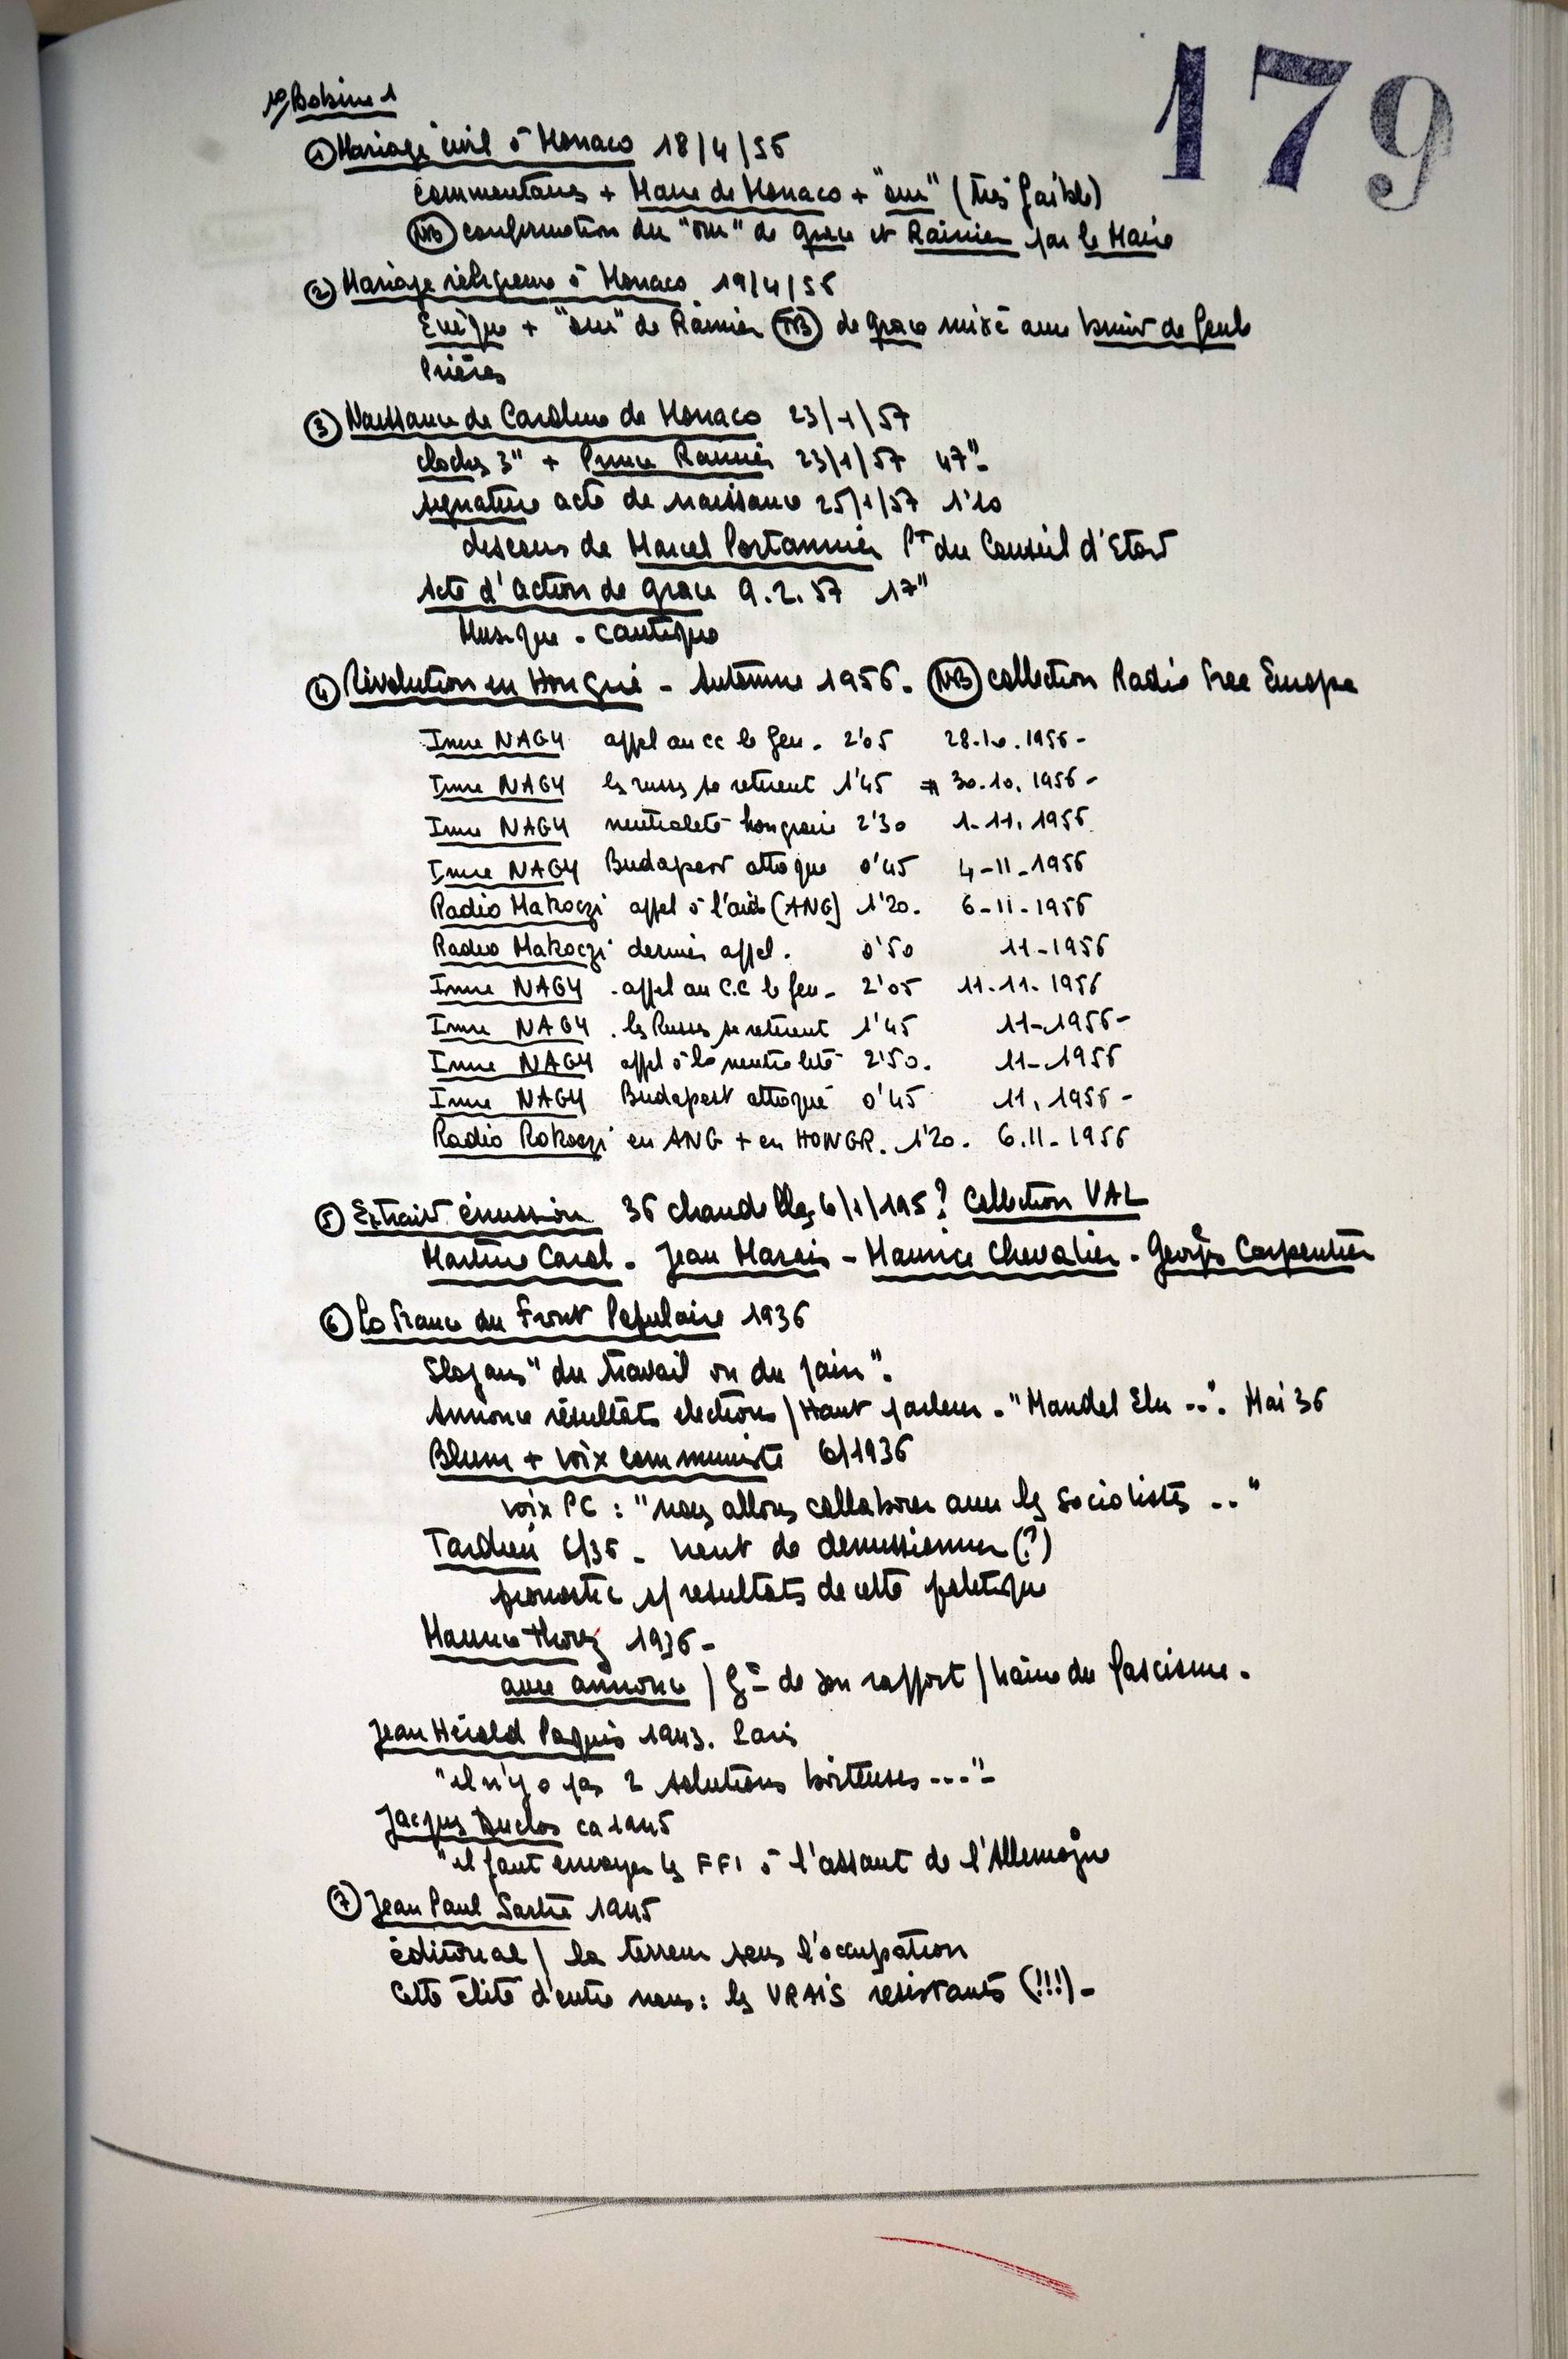 179
1°/ Bobine 1
① Mariage civil à Monaco 18/4/56
commentaires + Maire de Monaco + "oui" (très faible)
NB confirmation du "oui" de Grace et Rainier par le Maire
② Mariage religieux à Monaco 19/4/56
Evêque + "oui" de Rainier TB de Grace mixé avec bruit de foule
Prières
③ Naissance de Caroline de Monaco 23/1/57
cloches 3" + Prince Rainier 23/1/57 47"-
signature acte de naissance 25/1/57 1'10
discours de Marcel Portannier Pt du Conseil d'Etat
Acte d'action de grace 9.2.57 17"
Musique - cantique
④ Révolution en Hongrie - Automne 1956. NB collection Radio Free Europe
Imre NAGY appel au cc le feu - 2'05 28.10.1956 -
Imre NAGY les russes se retirent 1'45 30.10.1956 -
Imre NAGY neutralité hongroise 2'30 1-11.1956
Imre NAGY Budapest attaque 0'45 4-11-1956
Radio Rakoczi appel à l'aide (ANG) 1'20. 6-11-1956
Radio Rakoczi dernier appel. 0'50 11-1956
Imre NAGY . appel au C.C le feu - 2'05 11-11-1956
Imre NAGY . les Russes se retirent 1'45 11-1956 -
Imre NAGY appel à la neutralité 2'50. 11-1956
Imre NAGY Budapest attaqué 0'45 11.1956 -
Radio Rakoczi en ANG + en HONGR. 1'20. 6.11-1956
⑤ Extrait émission 36 chandelles 6/1/195? Collection VAL
Martine Carol - Jean Marais - Maurice Chevalier - Georges Carpentier
⑥ La France du Front Populaire 1936
Slogans "du travail ou du pain".
Annonce résultats élections / Haut parleur - "Mandel Elu ..". Mai 36
Blum + voix communiste 6/1936
voix PC : "nous allons collaborer avec les socialistes .."
Tardieu 6/36 - vient de demissionner (?)
pronostic s/ resultats de cette politique
Maurice Thorez 1936 -
avec annonce / de son rapport / haine du fascisme.
Jean Hérold Paquis 1943. Paris
"il n'y a pas 2 solutions boiteuses ..."-
Jacques Duclos ca 1945
"il faut envoyer les FFI à l'assaut de l'Allemagne
⑦ Jean Paul Sartre 1945
éditorial / la terreur sous l'occupation
Cette élite d'entre nous : les VRAIS résistants (!!!) -